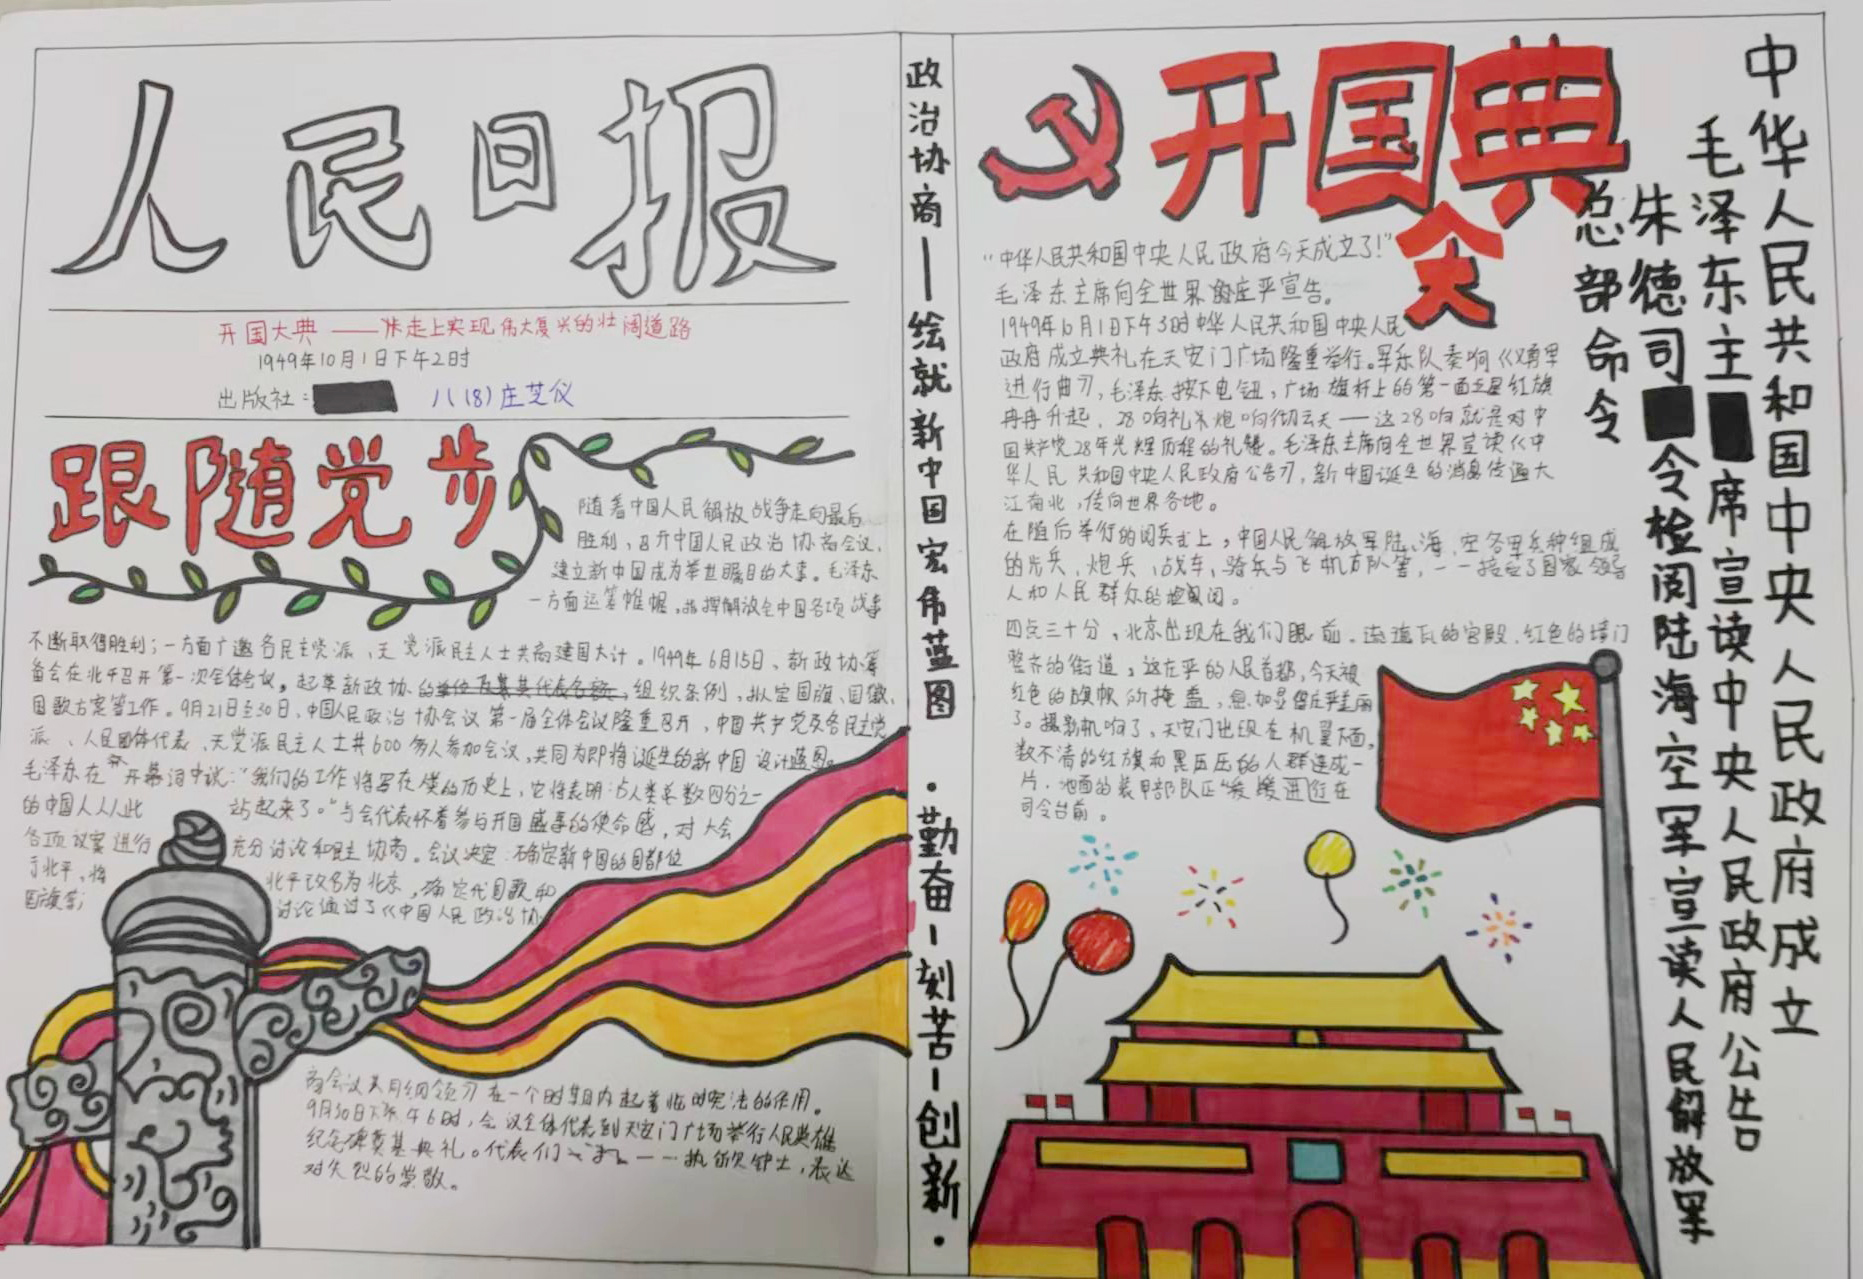 人民日报
开国大典——走上实现伟大复兴的壮阔道路
1949年10月1日下午2时
出版社：
八(8)庄芝仪
跟随党步
随着中国人民解放战争走向最后
胜利，召开中国人民政治协商会议，
建立新中国成为举世瞩目的大事。毛泽东
一方面运筹帷幄，指挥解放全中国各项战事
不断取得胜利；一方面广邀各民主党派、无党派民主人士共商建国大计。1949年6月15日、新政协筹
备会在北平召开第一次全体会议，起草新政协的组织条例，拟定国旗、国徽、
国歌方案等工作。9月21日至30日、中国人民政治协会议第一届全体会议隆重召开，中国共产党及各民主党
派、人民团体代表、无党派民主人士共600多人参加会议，共同为即将诞生的新中国设计蓝图。
毛泽东在开幕词中说："我们的工作将写在人类的历史上，它将表明：占人类总数四分之一
的中国人从此站起来了。"与会代表怀着参与开国盛事的使命感，对大会
各项议案进行充分讨论和民主协商。会议决定：确定新中国的国都位
于北平，将北平改名为北京，确定代国歌和
国旗等；讨论通过了《中国人民政治协
商会议共同纲领》在一个时期内起着临时宪法的作用。
9月30日下午6时，会议全体代表到天安门广场举行人民英雄
纪念碑奠基典礼。代表们一一执锨铲土，表达
对先烈的崇敬。
政治协商——绘就新中国宏伟蓝图
·勤奋-刻苦-创新·
开国大典
"中华人民共和国中央人民政府今天成立了！"
毛泽东主席向全世界庄严宣告。
1949年10月1日下午3时中华人民共和国中央人民
政府成立典礼在天安门广场隆重举行。军乐队奏响《义勇军
进行曲》，毛泽东按下电钮，广场旗杆上的第一面五星红旗
冉冉升起，28响礼炮响彻云天——这28响就是对中
国共产党28年光辉历程的礼赞。毛泽东主席向全世界宣读《中
华人民共和国中央人民政府公告》，新中国诞生的消息传遍大
江南北，传向世界各地。
在随后举行的阅兵式上，中国人民解放军陆、海、空各军兵种组成
的步兵、炮兵、战车、骑兵与飞机方队等，一一接受了国家领导
人和人民群众的检阅。
四点三十分，北京出现在我们眼前。琉璃瓦的宫殿，红色的墙门
整齐的街道，这庄严的人民首都，今天被
红色的旗帜所掩盖，愈加显得庄严美丽
了。摄影机响了，天安门出现在机翼下面，
数不清的红旗和黑压压的人群连成一
片，地面的装甲部队正缓缓进行在
司令台前。
中华人民共和国中央人民政府成立
毛泽东主席宣读中央人民政府公告
朱德司令检阅陆海空军宣读人民解放军
总部命令